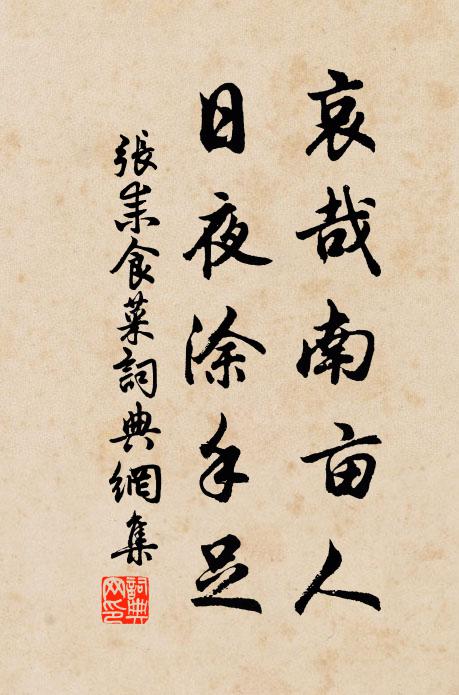 哀哉南亩人
日夜涂手足
張耒食菜詞典網集
詞典网印